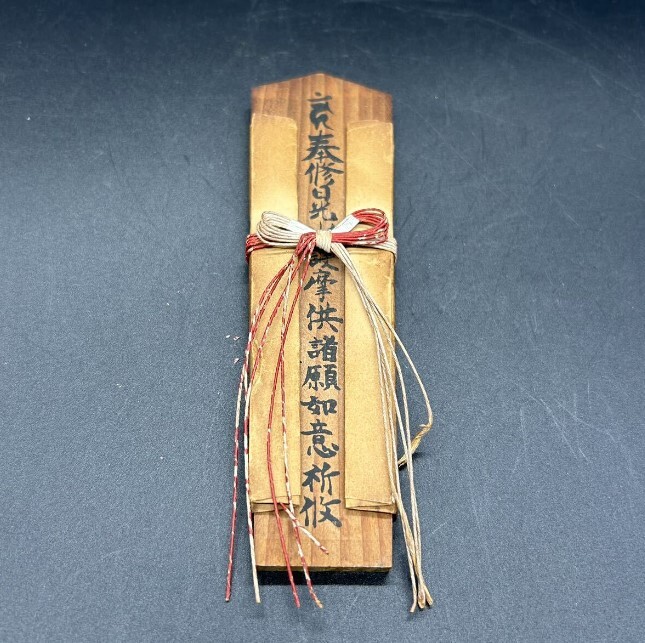 奉修日光山護摩供諸願如意祈攸